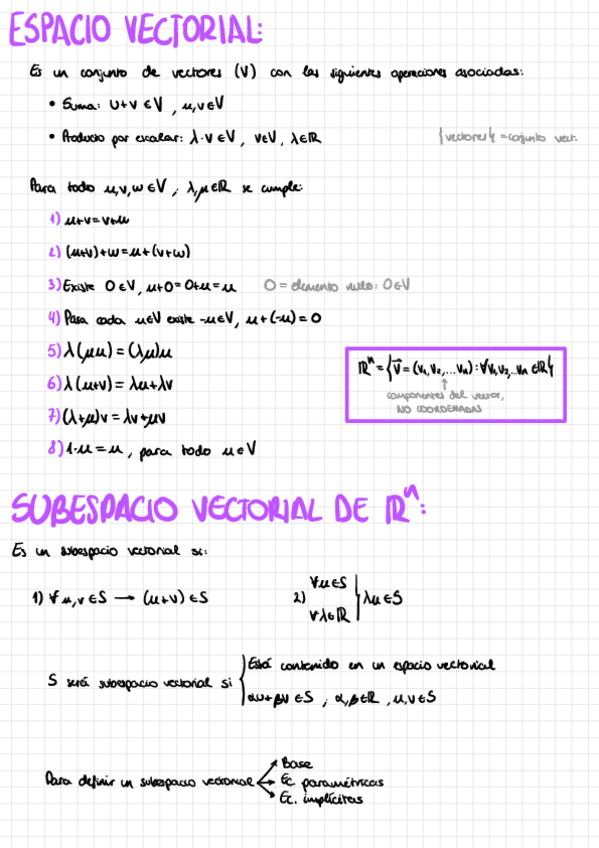 ESPACIO VECTORIAL:
Es un conjunto de vectores (V) con las siguientes operaciones asociadas:
• Suma: u+v ∈ V , u,v ∈ V
• Producto por escalar: λ·v ∈ V, v∈V, λ∈ℝ
{vectores} = conjunto vect.
Para todo u,v,w ∈ V ; λ,μ∈ℝ se cumple:
1) u+v=v+u
2) (u+v)+w=u+(v+w)
3) Existe 0 ∈ V, u+0=0+u=u
0 = elemento nulo: 0∈V
4) Para cada u∈V existe -u∈V, u+(-u)=0
5) λ(μu)=(λμ)u
6) λ(u+v) = λu+λv
7) (λ+μ)v = λv+μv
8) 1·u=u, para todo u∈V
ℝⁿ = {v⃗ = (v₁, v₂, ... vₙ) : ∀v₁,v₂,..vₙ ∈ℝ}
↑
componentes del vector,
NO COORDENADAS
SUBESPACIO VECTORIAL DE ℝⁿ:
Es un subespacio vectorial si:
1) ∀ u,v ∈ S → (u+v) ∈ S
2) ∀u∈S
∀λ∈ℝ } λu∈S
S será subespacio vectorial si { Está contenido en un espacio vectorial
αu+βv ∈S ; α,β∈ℝ , u,v∈S
Para definir un subespacio vectorial
Base
Ec. paramétricas
Ec. implícitas